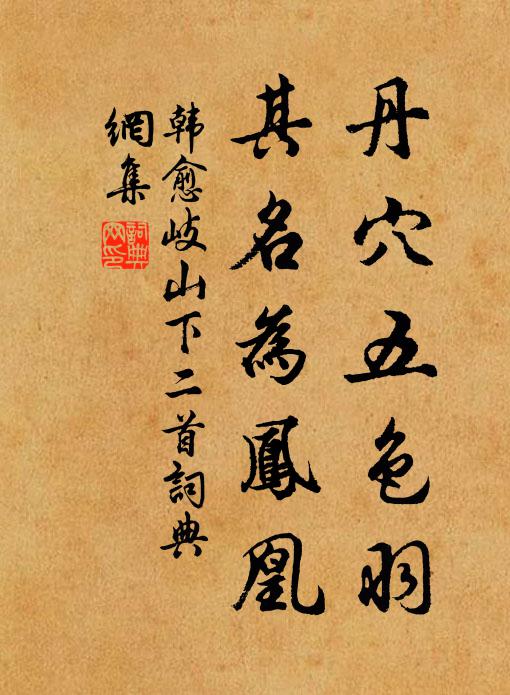 丹穴五色羽
其名為鳳凰
韩愈岐山下二首詞典
網集
詞典網印